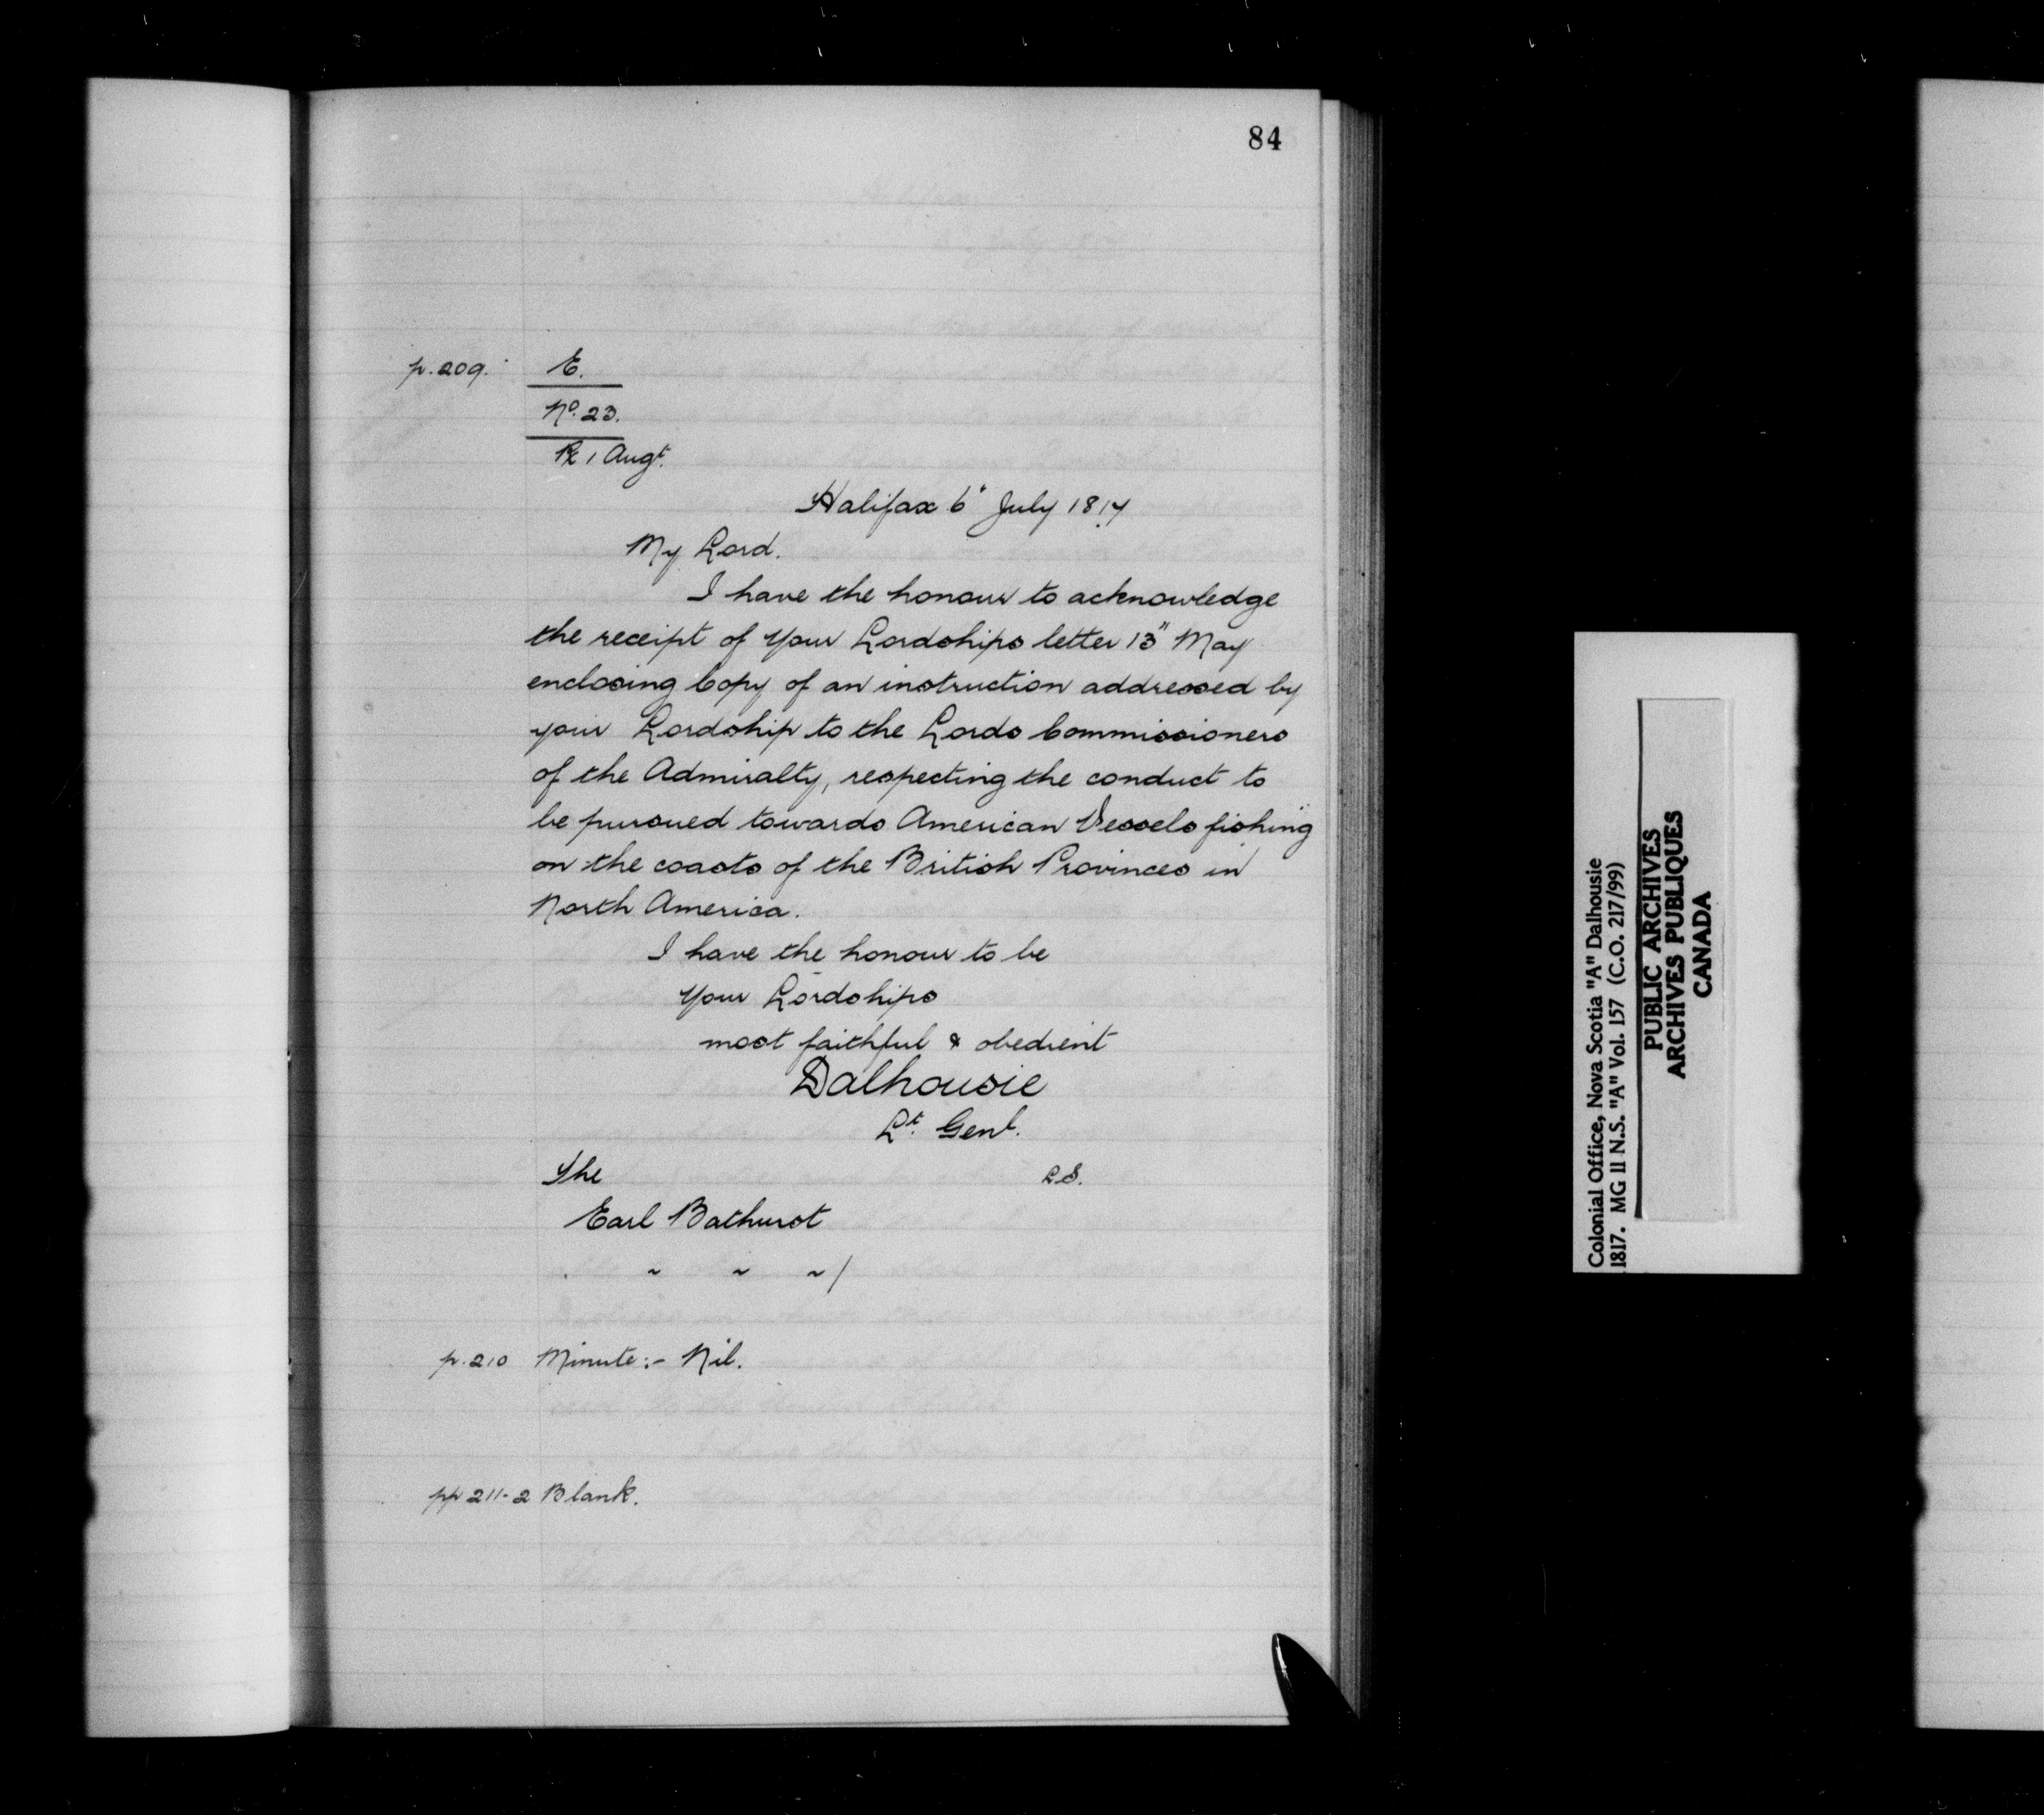 84
p. 209. E.
No. 23.
Rx 1 Augt.
Halifax 6" July 1817
My Lord.
I have the honour to acknowledge
the receipt of Your Lordships letter 13" May
enclosing Copy of an instruction addressed by
your Lordship to the Lords Commissioners
of the Admiralty, respecting the conduct to
be pursued towards American Vessels fishing
on the coasts of the British Provinces in
North America.
I have the honour to be
Your Lordships
most faithful & obedient
Dalhousie
Lt. Genl.
The L.S.
Earl Bathurst
" " "/
p. 210 Minute:- Nil.
pp 211-2 Blank.
Colonial Office, Nova Scotia "A" Dalhousie
1817. MG 11 N.S. "A" Vol. 157 (C.O. 217/99)
PUBLIC ARCHIVES
ARCHIVES PUBLIQUES
CANADA